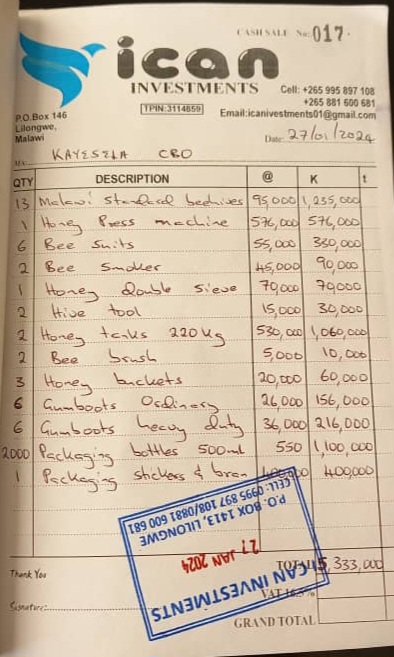 CASH SALE No: 017
ican
INVESTMENTS
TPIN:3114659
Cell: +265 995 897 108
+265 881 600 681
Email:icanivestments01@gmail.com
P.O.Box 146
Lilongwe,
Malawi
Date: 27/01/2024
M/s KAYESELA CBO
QTY DESCRIPTION @ K t
13 Malawi standard beehives 95,000 1,235,000
1 Honey Press machine 576,000 576,000
6 Bee suits 55,000 330,000
2 Bee smoker 45,000 90,000
1 Honey double sieve 70,000 70,000
2 Hive tool 15,000 30,000
2 Honey tanks 220kg 530,000 1,060,000
2 Bee brush 5,000 10,000
3 Honey buckets 20,000 60,000
6 Gumboots Ordinary 26,000 156,000
6 Gumboots heavy duty 36,000 216,000
2000 Packaging bottles 500ml 550 1,100,000
1 Packaging stickers & 400,000 400,000
CAN INVESTMENTS
27 JAN 2024
P.O. BOX 1413, LILONGWE
CELL: 0995 897 108/0881 600 681
Thank You
TOTAL 5,333,000
VAT 16.5%
Signature:
GRAND TOTAL